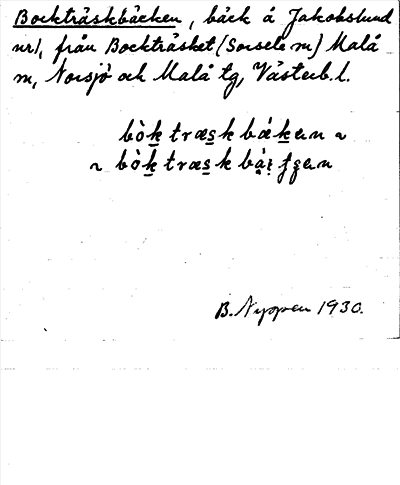 Bockträskbäcken, bäck å Jakobslund
nr1, från Bockträsket (Sorsele m) Malå
m, Norsjö och Malå tg, Västerb. l.
bòk træsk bákan ~
~ bòk træsk
B. Nyppen 1930.